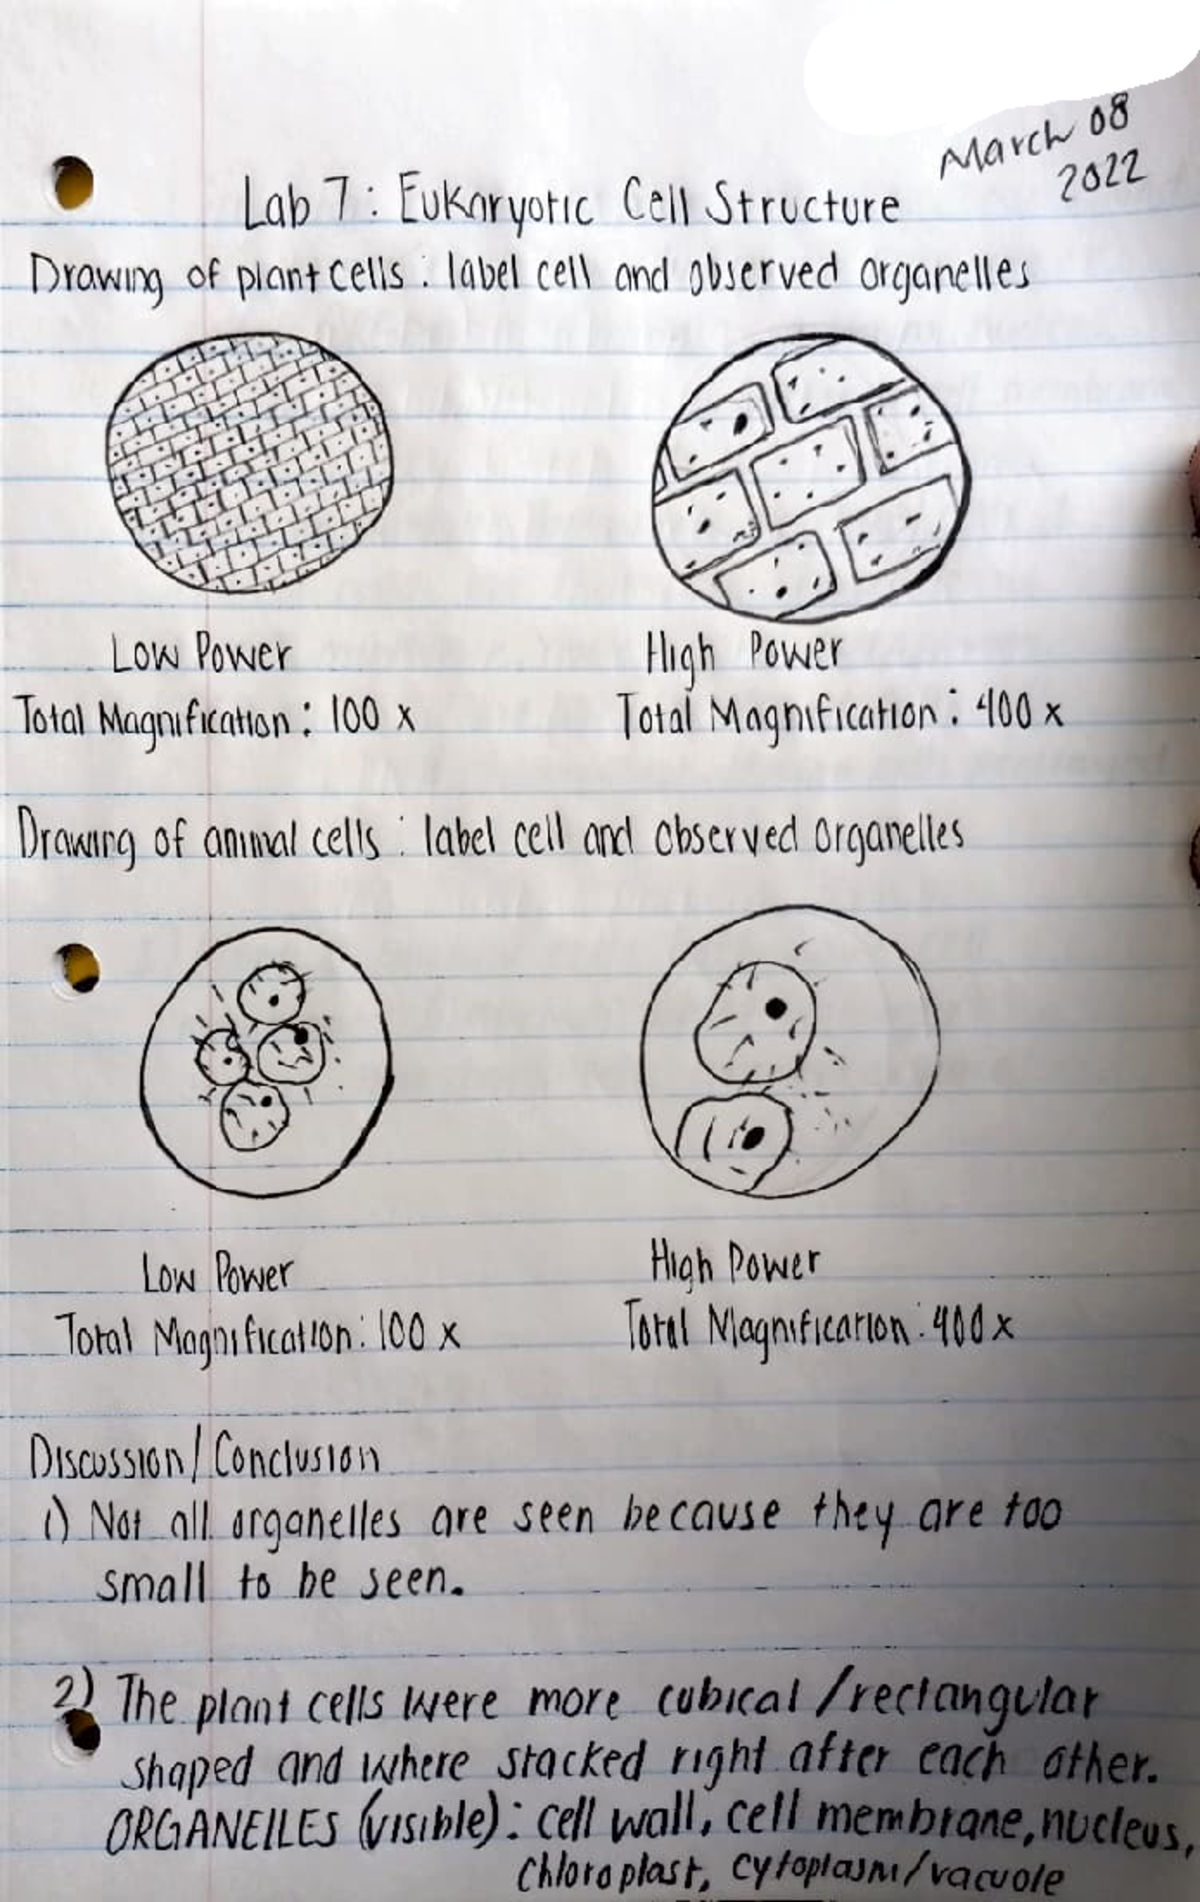 March 08
2022
Lab 7: Eukaryotic Cell Structure
Drawing of plant cells: label cell and observed organelles
Low Power
High Power
Total Magnification: 100 x
Total Magnification: 400 x
Drawing of animal cells: label cell and observed organelles
Low Power
High Power
Total Magnification: 100 x
Total Magnification: 400 x
Discussion/Conclusion
1) Not all organelles are seen because they are too
small to be seen.
2) The plant cells were more cubical/rectangular
shaped and where stacked right after each other.
ORGANELLES (visible): cell wall, cell membrane, nucleus,
chloroplast, cytoplasm/vacuole